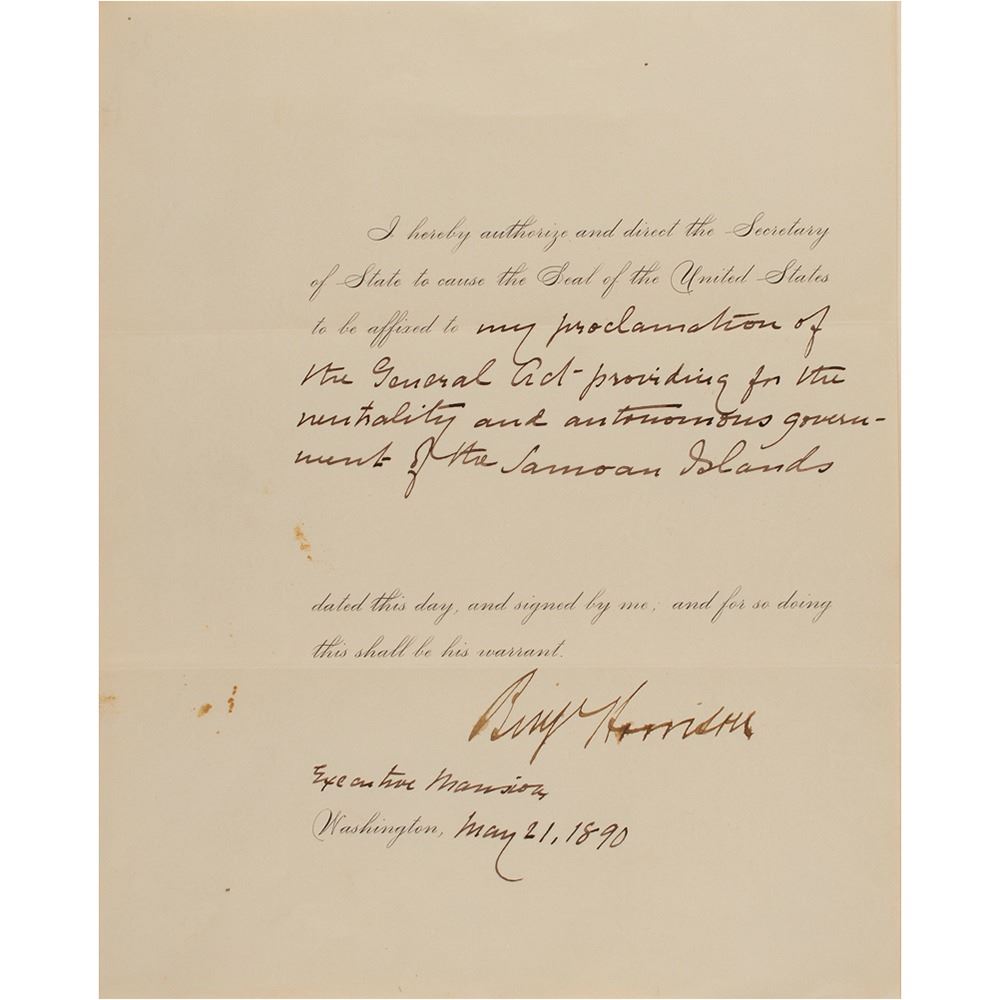 I hereby authorize and direct the Secretary
of State to cause the Seal of the United States
to be affixed to my proclamation of
the General Act providing for the
neutrality and autonomous govern-
ment of the Samoan Islands
dated this day, and signed by me; and for so doing
this shall be his warrant.
Benj Harrison
Executive Mansion,
Washington, May 21, 1890